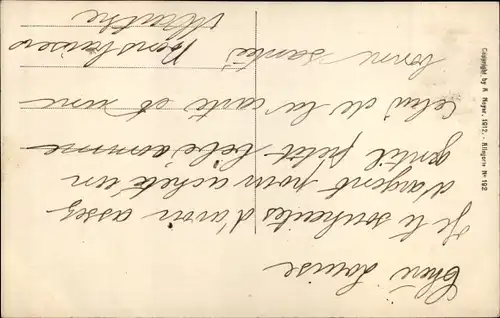 Cheri Louise
Je te souhaites d'avoir assez
d'argent pour acheté un
gentil petit bébé comme
celui de la carte et une
bonne santé
Bons baisers
Marthe
Copyright by A. Noyer, 1912. - Allegorie Nr 192